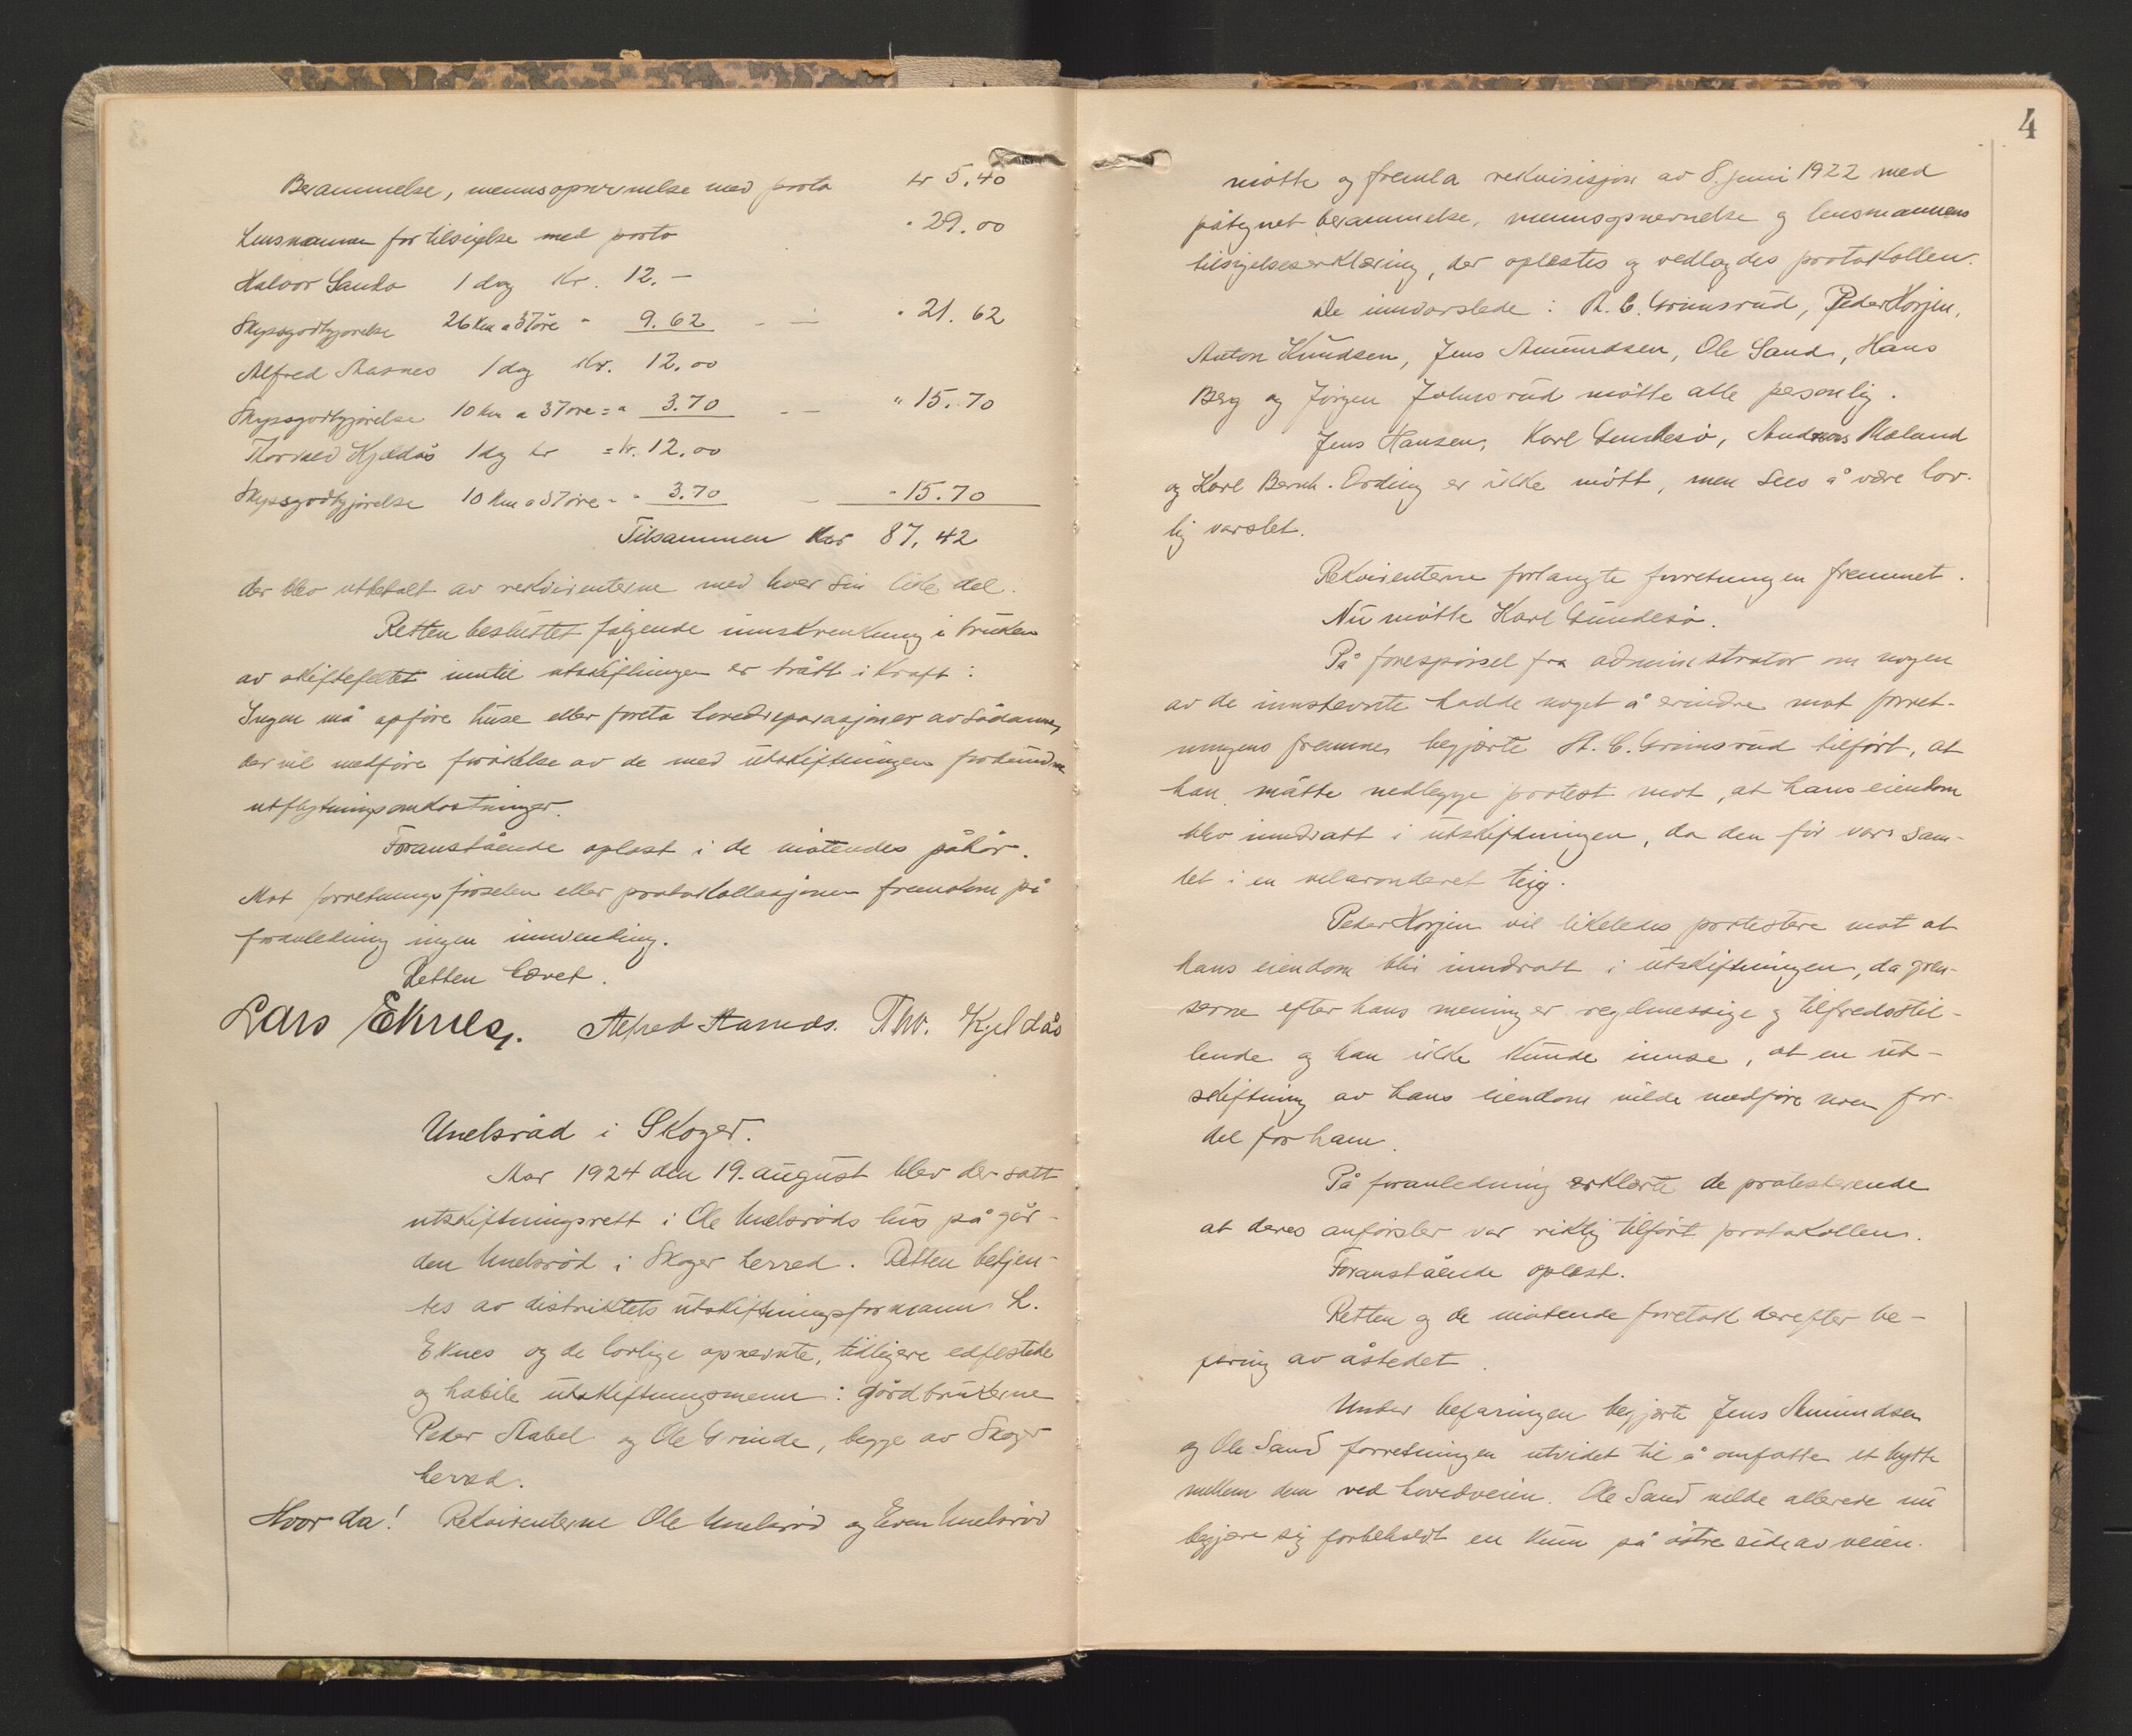 Berammelse, mennsopnevnelse med porto kr 5,40
Lensmannen for tilsigelse med porto " 29.00
Halvor Sanda 1 dag kr. 12.-
Skyssgodtgjørelse 26 km a 37 øre " 9.62 - - " 21.62
Alfred Aasnes 1 dag kr. 12.00
Skyssgodtgjørelse 10 km a 37 øre = " 3.70 - - " 15.70
Thorvald Kjeldås 1 dag kr = kr. 12.00
Skyssgodtgjørelse 10 km a 37 øre - " 3.70 - " 15.70
Tilsammen kr 87,42
der blev utbetalt av rekvirenterne med hver sin like del.
Retten besluttet følgende innskrenkning i bruken
av skiftefeltet inntil utskiftningen er trått i kraft:
Ingen må opføre huse eller foreta hovedreparasjoner av sådanne,
der vil medføre forøkelse av de med utskiftningen forbundne
utflytningsomkostninger.
Foranstående oplest i de møtendes påhør.
Mot forretningsførselen eller protokollasjonen fremkom på
foranledning ingen innvending.
Retten hevet.
Lars Eknes. Alfred Aasnes. Thv. Kjeldås
Unelsrød i Skoger.
Aar 1924 den 19. august blev der satt
utskiftningsrett i Ole Unelsrøds hus på går-
den Unelsrød i Skoger herred. Retten betjen-
tes av distriktets utskiftningsformann L.
Eknes og de lovlige opnevnte, tidligere edfestede
og habile utskiftningsmenn: gårdbrukerne
Peder Stabel og Ole Grinde, begge av Skoger
herred.
Hvor da! Rekvirenterne Ole Unelsrød og Even Unelsrød
4
møtte og fremla rekvisisjon av 8. juni 1922 med
påtegnet berammelse, mennsopnevnelse og lensmannens
tilsigelseserklæring, der oplestes og vedlagdes protokollen.
De innvarslede: A. C. Grimsrud, Peder Horjen,
Anton Knudsen, Jens Amundsen, Ole Sand, Hans
Berg og Jørgen Johnsrud møtte alle personlig.
Jens Hansen, Karl Gundesø, Andreas Røland
og Karl Bernh. Ording er ikke møtt, men sees å være lov-
lig varslet.
Rekvirenterne forlangte forretningen fremmet.
Nu møtte Karl Gundesø.
På forespørsel fra administrator om nogen
av de innstevnte hadde noget å erindre mot forret-
ningens fremme, begjærte A. C. Grimsrud tilført, at
han måtte nedlegge protest mot, at hans eiendom
blev inndratt i utskiftningen, da den før var sam-
let i en velarronderet teig.
Peder Horjen vil likeledes protestere mot at
hans eiendom blir inndratt i utskiftningen, da gren-
serne efter hans mening er regelmessige og tilfredsstil-
lende og han ikke kunde innse, at en ut-
skiftning av hans eiendom vilde medføre noen for-
del for ham.
På foranledning erklærte de protesterende
at deres anførsler var riktig tilført protokollen.
Foranstående oplest.
Retten og de møtende foretok derefter be-
faring av åstedet.
Under befaringen begjærte Jens Amundsen
og Ole Sand forretningen utvidet til å omfatte et bytte
mellem dem ved hovedveien. Ole Sand vilde allerede nu
begjære sig forbeholdt en kum på østre side av veien.